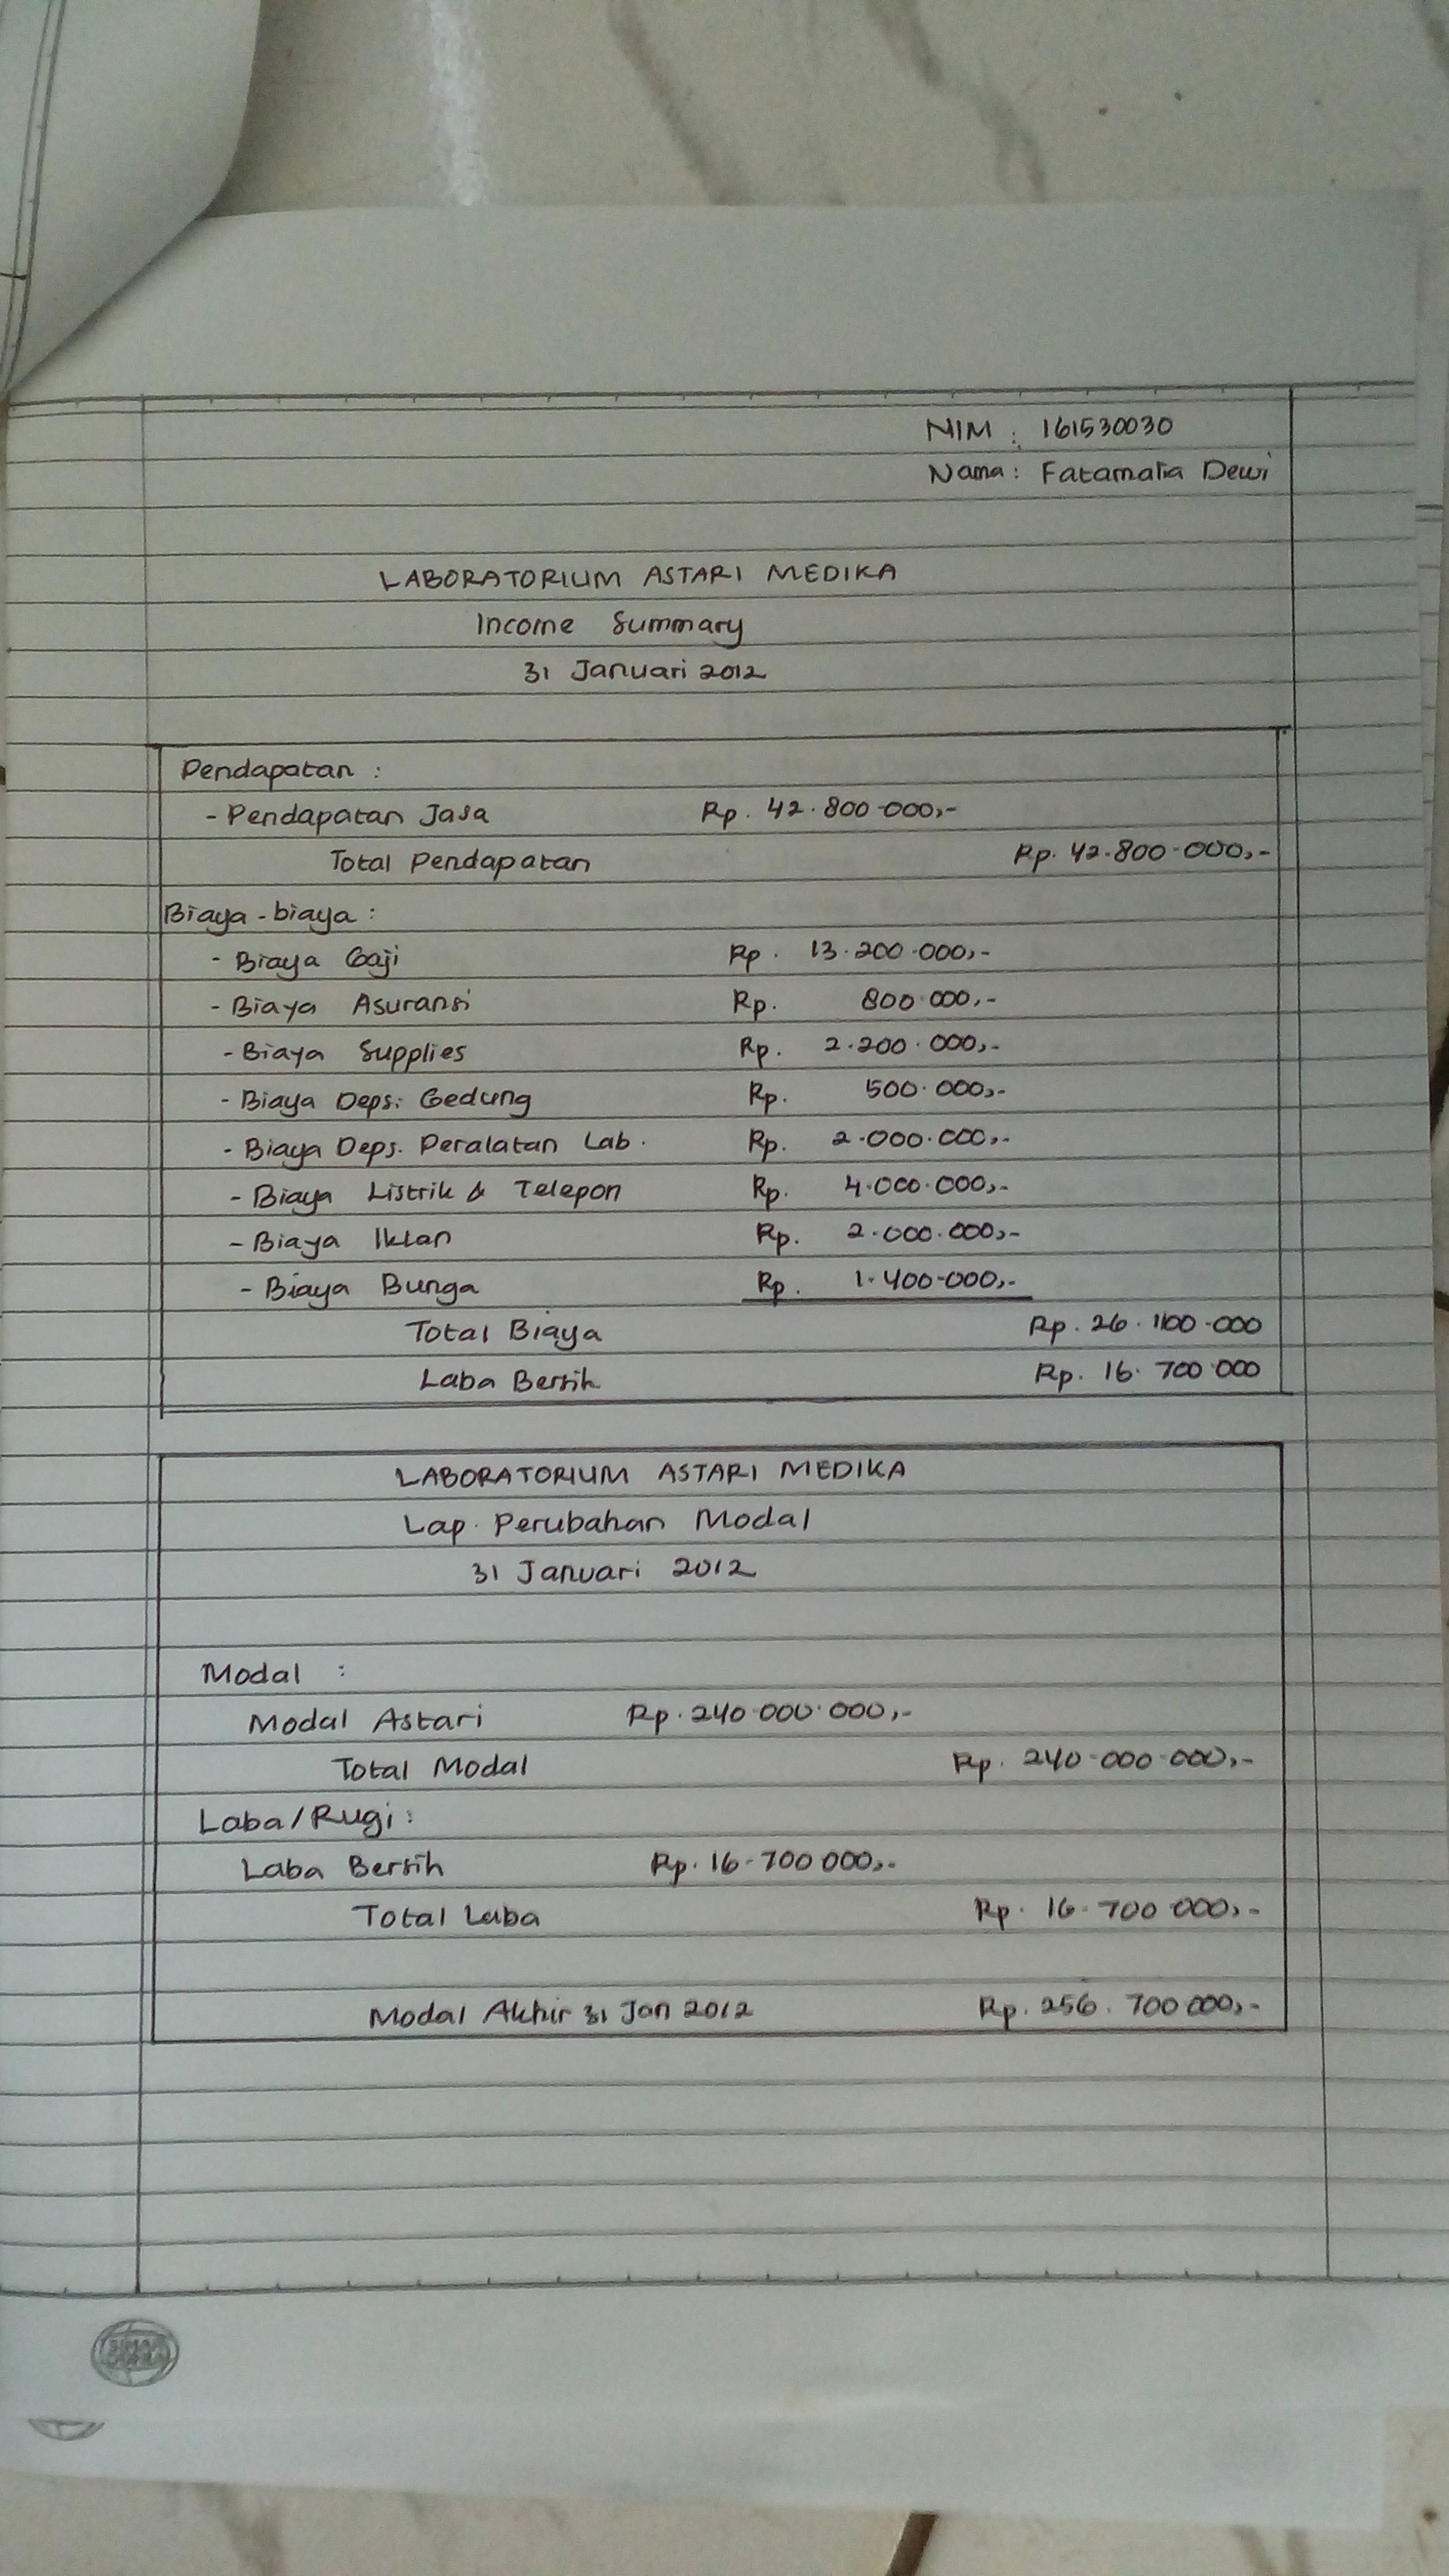 NIM : 161530030
Nama : Fatamalia Dewi
LABORATORIUM ASTARI MEDIKA
Income Summary
31 Januari 2012
Pendapatan :
- Pendapatan Jasa Rp. 42.800.000,-
Total Pendapatan Rp. 42.800.000,-
Biaya-biaya :
- Biaya Gaji Rp. 13.200.000,-
- Biaya Asuransi Rp. 800.000,-
- Biaya Supplies Rp. 2.200.000,-
- Biaya Deps. Gedung Rp. 500.000,-
- Biaya Deps. Peralatan Lab. Rp. 2.000.000,-
- Biaya Listrik & Telepon Rp. 4.000.000,-
- Biaya Iklan Rp. 2.000.000,-
- Biaya Bunga Rp. 1.400.000,-
Total Biaya Rp. 26.100.000
Laba Bersih Rp. 16.700.000
LABORATORIUM ASTARI MEDIKA
Lap. Perubahan Modal
31 Januari 2012
Modal :
Modal Astari Rp. 240.000.000,-
Total Modal Rp. 240.000.000,-
Laba/Rugi :
Laba Bersih Rp. 16.700.000,-
Total Laba Rp. 16.700.000,-
Modal Akhir 31 Jan 2012 Rp. 256.700.000,-